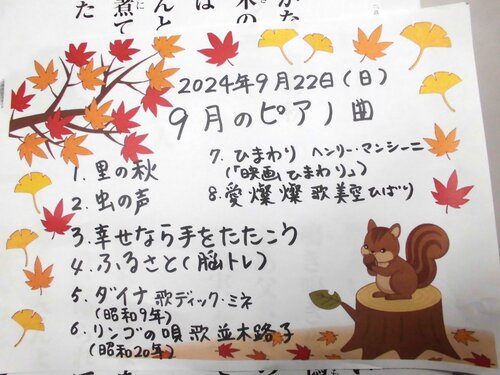 2024年9月22日(日)
9月のピアノ曲
1.里の秋
2.虫の声
3.幸せなら手をたたこう
4.ふるさと(脳トレ)
5.ダイナ 歌ディック・ミネ
(昭和9年)
6.リンゴの唄 歌 並木路子
(昭和20年)
7.ひまわり ヘンリー・マンシーニ
(「映画 ひまわり」)
8.愛燦燦 歌 美空ひばり